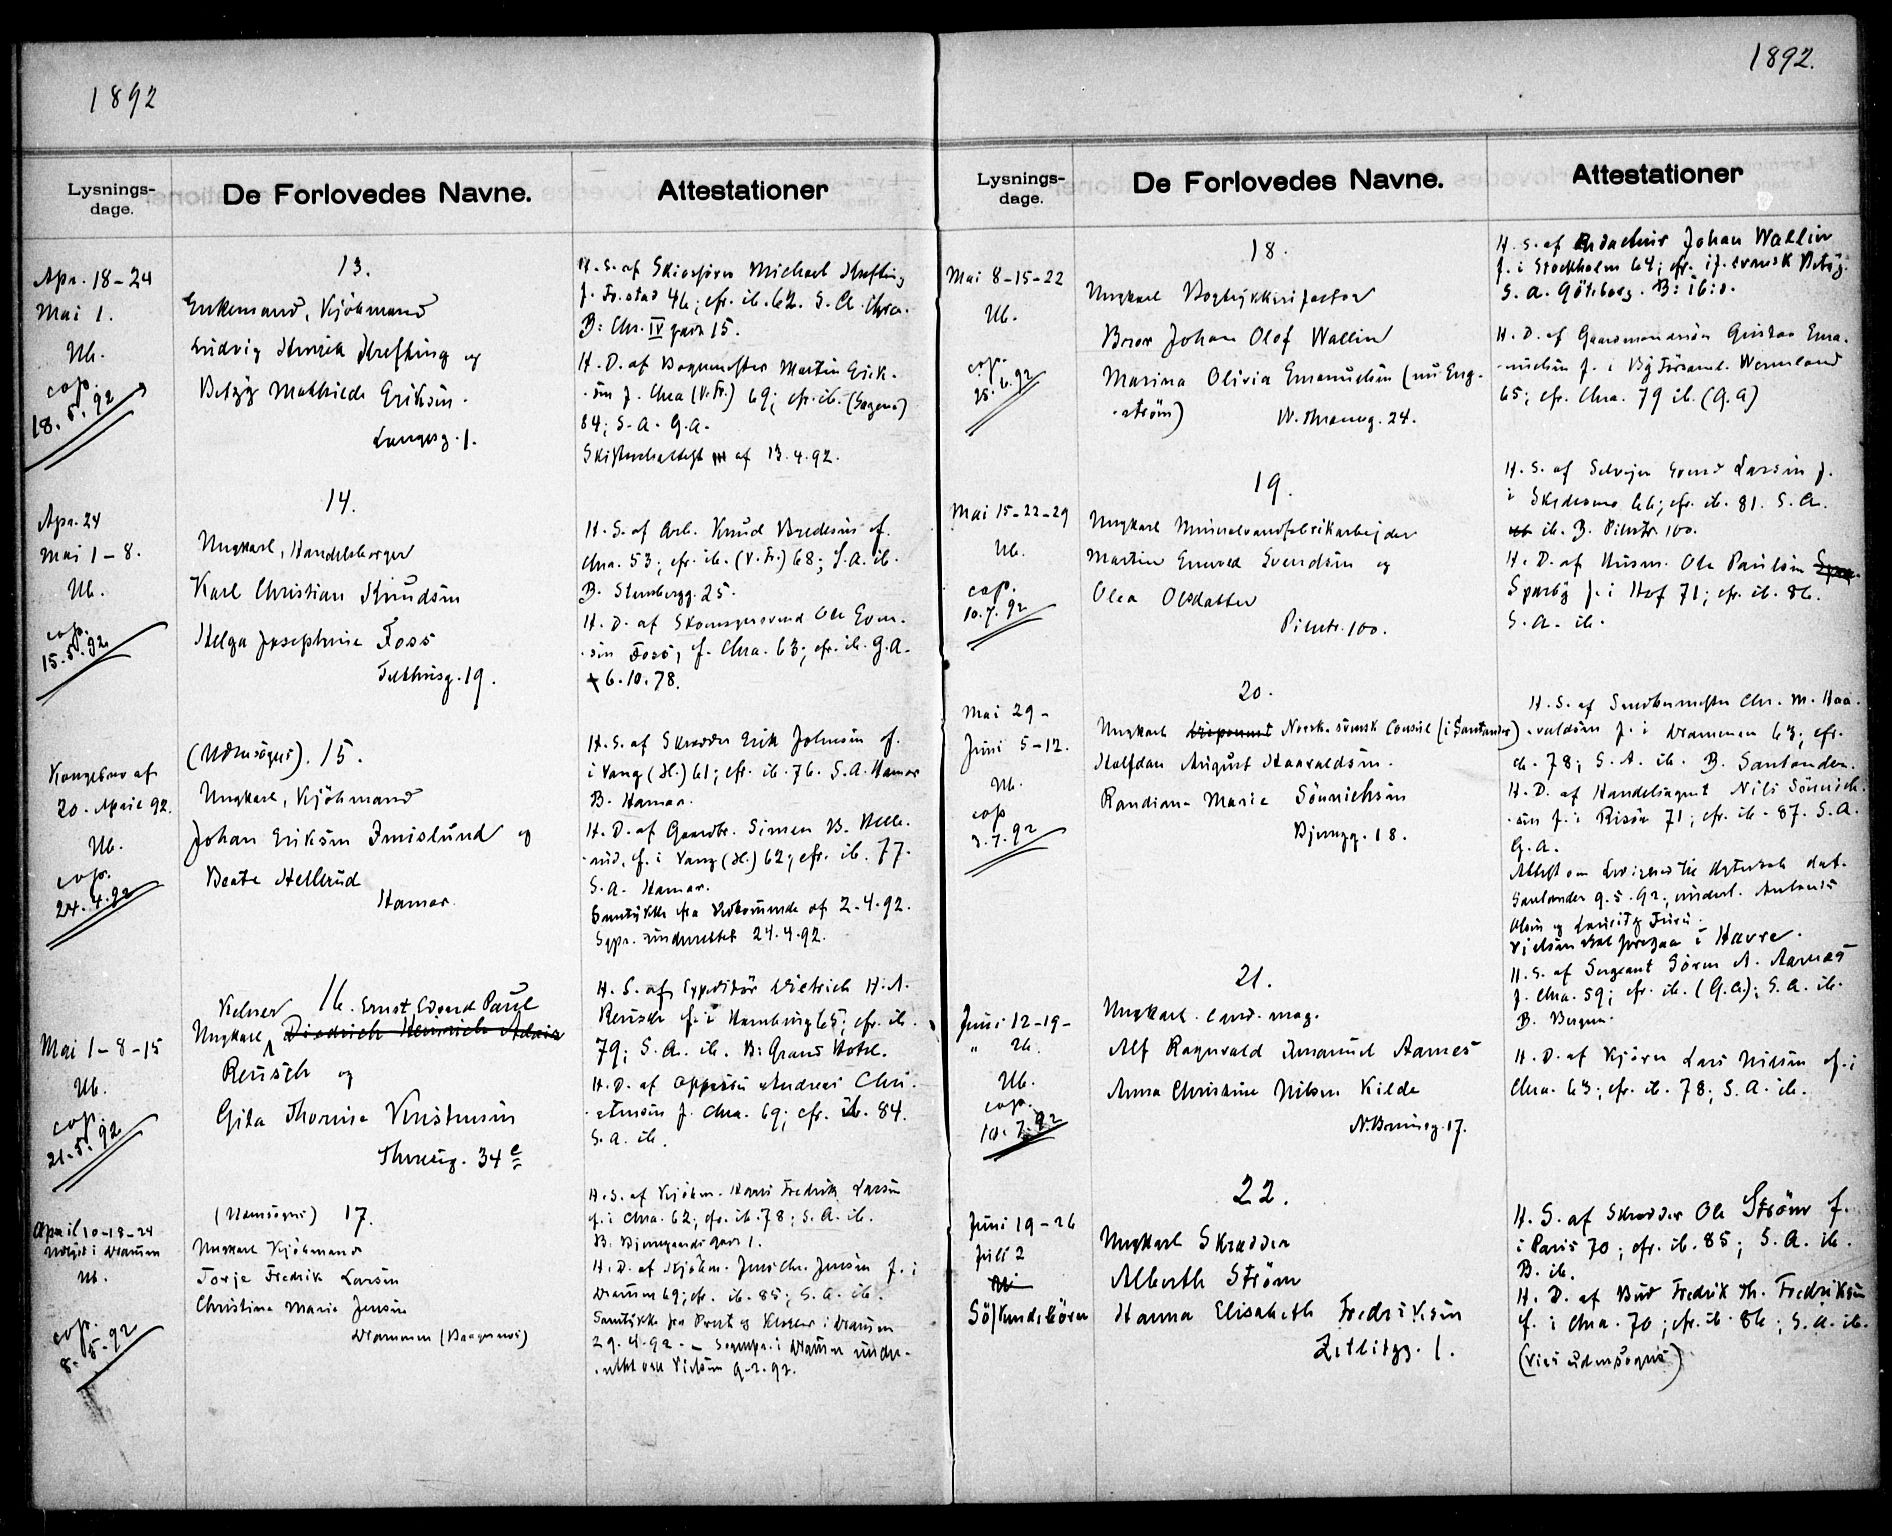 1892
Lysnings-
dage.
De Forlovedes Navne.
Attestationer
Apr. 18-24
Mai 1.
Ub.
cop.
18.5.92
13.
Enkemand, Kjöbmand
Ludvig Henrik Krefting og
Betzy Mathilde Eriksen.
Langesg. 1.
H. S. af Skibsförer Michael Krefting
f. Fr.stad 46; cfr. ib. 62. S. A. Chra.
B: Chr. IV gade 15.
H. D. af Bogmester Martin Erik-
-sen f. Chra (V. Fr.) 69; cfr. ib. (Sagene)
84; S. A. G. A.
Skifteretsattest af 13.4.92.
Apr. 24
Mai 1-8.
Ub.
cop.
15.5.92
14.
Ungkarl, Handelsborger
Karl Christian Knudsen
Helga Josephine Foss
Telthusg. 19.
H. S. af Arb. Knud Bredesen f.
Chra. 53; cfr. ib. (V. Fr.) 68; S. A. ib.
B. Stensbergg. 25.
H. D. af Skomagersvend Ole Even-
-sen Foss, f. Chra. 63; cfr. ib. G. A.
6.10.78.
Kongebrev af
20. April 92.
Ub.
cop.
24.4.92
(Udensogns). 15.
Ungkarl, Kjöbmand
Johan Eriksen Imislund og
Beate Hellerud
Hamar.
H. S. af Skrædder Erik Johnsen f.
i Vang (H.) 61; cfr. ib. 76. S. A. Hamar
B. Hamar.
H. D. af Gaardbr. Simen B. Helle-
-rud, f. i Vang (H.) 62; cfr. ib. 77.
S. A. Hamar.
Samtykke fra Vedkommende af 2.4.92.
Sgpr. underrettet 24.4.92.
Mai 1-8-15
Ub.
cop.
21.5.92
Kelner 16. Ernst Edvard Paul
Ungkarl Diedrich Heinrich Adair
Reusch og
Gila Thomine Kristensen
Theresesg. 34 e
H. S. af Expeditör Dietrich H. A.
Reusch f. i Hamburg 65; cfr. ib.
79; S. A. ib. B: Grand Hotel.
H. D. af Oppasser Andreas Chri-
-stensen f. Chra. 69; cfr. ib. 84.
S. A. ib.
April 10-18-24
Udlyst i Dramen
Ub.
cop.
8.5.92
(Udensogns) 17.
Ungkarl Kjöbmand
Torje Fredrik Larsen
Christine Marie Jensen
Drammen (Bragernes)
H. S. af Kjöbm. Hans Fredrik Larsen
f. i Chra. 62; cfr. ib. 78; S. A. ib.
B. Bjerregaardsgade 1.
H. D. af Kjöbm. Jens Chr. Jensen f. i
Dramen 69; cfr. ib. 85; S. A. ib.
Samtykke fra Prest og Klokker i Dramen
29.4.92. - Sognepr. i Dramen under-
-rettet om Vielsen
1892.
Lysnings-
dage.
De Forlovedes Navne.
Attestationer
Mai 8-15-22
Ub.
cop.
25.6.92
18.
Ungkarl Bogtrykkerifaktor
Bror Johan Olof Wallin
Marina Olivia Emanuelsen (nu Eng-
-ström) W. Thraneg. 24.
H. S. af Redacteur Johan Wallin
f. i Stockholm 64; cfr. if. svensk Betyg.
S. A. Göteborg. B: ib:
H. D. af Gaardmandssön Gustav Ema-
-nuelsen f. i By Församl. Wermland
65; cfr. Chra. 79 ib. (G. A)
Mai 15-22-29
Ub.
cop.
10.7.92
19.
Ungkarl Mineralvandfabrikarbejder
Martin Enevold Svendsen og
Olea Olsdatter
Pilestr. 100.
H. S. af Selvejer Svend Larsen f.
i Skedsmo 66; cfr. ib. 81. S. A.
ib. B. Pilestr. 100.
H. D. af Husm. Ole Paulsen
Sparby f. i Hof 71; cfr. ib. 86.
S. A. ib.
Mai 29-
Juni 5-12.
Ub.
cop
3.7.92
20.
Ungkarl Norsk-svensk Consul (i Santander)
Halfdan August Haavaldsen.
Randiana Marie Sönnichsen
Bjerregg. 18.
H. S. af Snedkermester Chr. M. Haa-
-valdsen f. i Drammen 63; cfr.
ib. 78; S. A. ib. B. Santander.
H. D. af Handelsagent Nils Sönnich-
-sen f. i Risör 71; cfr. ib. 87. S. A.
G. A.
Attest om Ledighed til Ægteskab dat.
Santander 9.5.92, underl. Antonio
Olsen og Lauritz Furu.
Vielsen skal foregaa i Havre.
Juni 12-19-
" 26.
Ub.
cop.
10.7.92
21.
Ungkarl cand. mag.
Alf Ragnvald Imanuel Aarnes
Anna Christine Nilsen Kilde
N. Bruunsg. 17.
H. S. af Sergeant Sören A. Aarnes
f. Chra. 59; cfr. ib. (G. A.); S. A. ib.
B. Bergen.
H. D. af Kjörer Lars Nilsen f. i
Chra. 63; cfr. ib. 78; S. A. ib.
Juni 19-26
Juli 2
Ub
Söskendebörn
22.
Ungkarl Skrædder
Alberth Ström
Hanna Elisabeth Fredriksen
Zetlitzg. 1.
H. S. af Skrædder Ole Ström f.
i Paris 70; cfr. ib. 85; S. A. ib.
B. ib.
H. D. af Bud Fredrik Th. Fredriksen
f. i Chra. 70; cfr. ib. 86; S. A. ib.
(Viet udensogns)